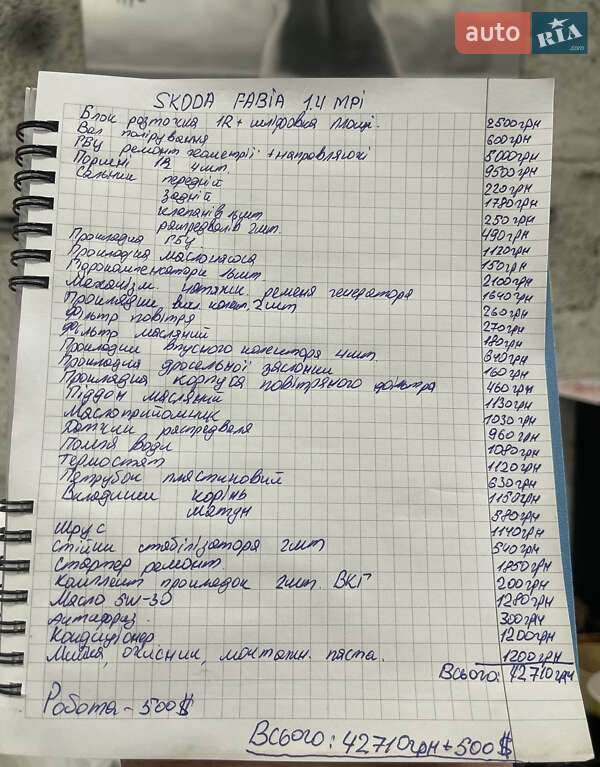 auto RIA.com
SKODA FABIA 1.4 MPI
Блок розточка 1R + шліфовка площі. 2500грн
Вал полірування 600грн
РБУ ремонт геометрії + направляючі 5000грн
Поршні 1R 4шт. 9500грн
Сальник передній 220грн
задній 1780грн
клапанів 16шт 250грн
распредвалів 2шт. 490грн
Прокладка ГБУ. 1120грн
Прокладка маслонасоса 150грн
Гідрокомпенсатори 16шт 2100грн
Механізм. натяжн. ременя генератора 1640грн
Прокладки, вип. колект. 2шт 260грн
Фільтр повітря 270грн
Фільтр масляний 180грн
Прокладки впускного колектора 4шт. 640грн
Прокладка дросельної заслонки 160грн
Прокладка корпуса повітряного фільтра 460грн
Піддон масляний 1130грн
Маслоприйомник 1030грн
Датчик распредвала 960грн
Помпа води 1080грн
Термостат 1120грн
Патрубок пластиковий 630грн
Вкладиши корінь 1150грн
шатун 580грн
Шрус 1140грн
Стійки стабілізатора 2шт 540грн
Стартер ремонт 1850грн
Комплект прокладок 2шт. ВКГ 200грн
Масло 5W-30 1280грн
Антифриз. 300грн
Кондиціонер 1200грн
Мийка, очисник, монтажн. паста. 1200грн
Всього: 42710грн
Робота - 500$
Всього: 42710грн + 500$